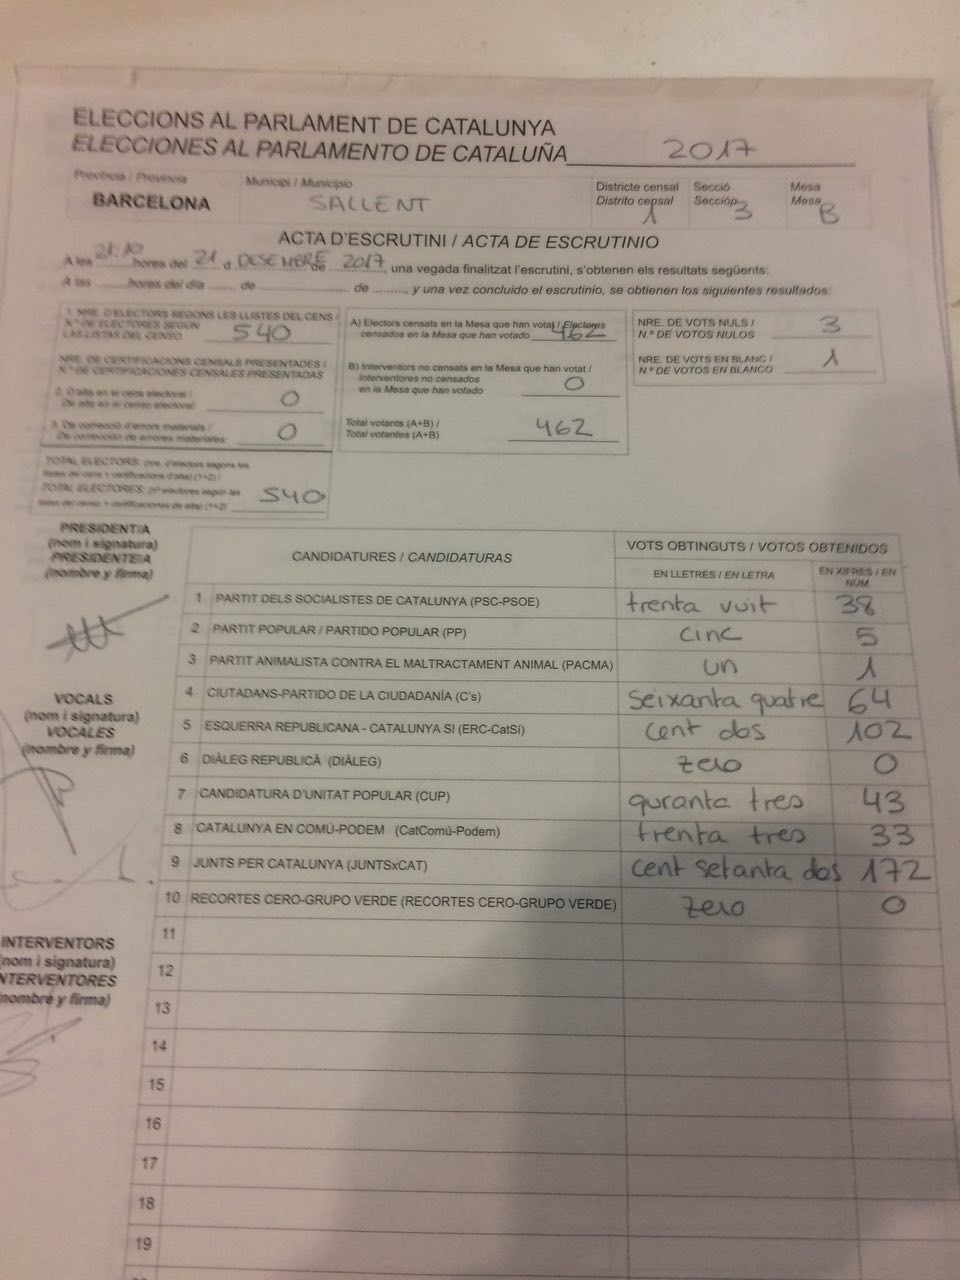 ELECCIONS AL PARLAMENT DE CATALUNYA
ELECCIONES AL PARLAMENTO DE CATALUÑA 2017
Província / Provincia
BARCELONA
Municipi / Municipio
SALLENT
Districte censal
Distrito censal
1
Secció
Sección
3
Mesa
Mesa
B
ACTA D'ESCRUTINI / ACTA DE ESCRUTINIO
A les 21:10 hores del 21 d DESEMBRE de 2017, una vegada finalitzat l'escrutini, s'obtenen els resultats següents:
A las ........ horas del día ...... de .................... de ........, y una vez concluido el escrutinio, se obtienen los siguientes resultados:
1. NRE. D'ELECTORS SEGONS LES LLISTES DEL CENS /
N.º DE ELECTORES SEGÚN
LAS LISTAS DEL CENSO 540
NRE. DE CERTIFICACIONS CENSALS PRESENTADES /
N.º DE CERTIFICACIONES CENSALES PRESENTADAS
2. D'alta en el cens electoral /
De alta en el censo electoral: 0
3. De correcció d'errors materials /
De corrección de errores materiales: 0
TOTAL ELECTORS: (nre. d'electors segons les
llistes del cens + certificacions d'alta) (1+2) /
TOTAL ELECTORES: (nº electores según las
listas del censo + certificaciones de alta) (1+2) 540
A) Electors censats en la Mesa que han votat / Electores
censados en la Mesa que han votado 462
B) Interventors no censats en la Mesa que han votat /
Interventores no censados
en la Mesa que han votado 0
Total votants (A+B) /
Total votantes (A+B) 462
NRE. DE VOTS NULS /
N.º DE VOTOS NULOS 3
NRE. DE VOTS EN BLANC /
N.º DE VOTOS EN BLANCO 1
PRESIDENT/A
(nom i signatura)
PRESIDENTE/A
(nombre y firma)
VOCALS
(nom i signatura)
VOCALES
(nombre y firma)
INTERVENTORS
(nom i signatura)
INTERVENTORES
(nombre y firma)
CANDIDATURES / CANDIDATURAS
VOTS OBTINGUTS / VOTOS OBTENIDOS
EN LLETRES / EN LETRA
EN XIFRES / EN
NÚM.
1 PARTIT DELS SOCIALISTES DE CATALUNYA (PSC-PSOE) trenta vuit 38
2 PARTIT POPULAR / PARTIDO POPULAR (PP) cinc 5
3 PARTIT ANIMALISTA CONTRA EL MALTRACTAMENT ANIMAL (PACMA) un 1
4 CIUTADANS-PARTIDO DE LA CIUDADANÍA (C's) seixanta quatre 64
5 ESQUERRA REPUBLICANA - CATALUNYA SI (ERC-CatSí) cent dos 102
6 DIÀLEG REPUBLICÀ (DIÀLEG) zero 0
7 CANDIDATURA D'UNITAT POPULAR (CUP) quranta tres 43
8 CATALUNYA EN COMÚ-PODEM (CatComú-Podem) trenta tres 33
9 JUNTS PER CATALUNYA (JUNTSxCAT) cent setanta dos 172
10 RECORTES CERO-GRUPO VERDE (RECORTES CERO-GRUPO VERDE) zero 0
11
12
13
14
15
16
17
18
19